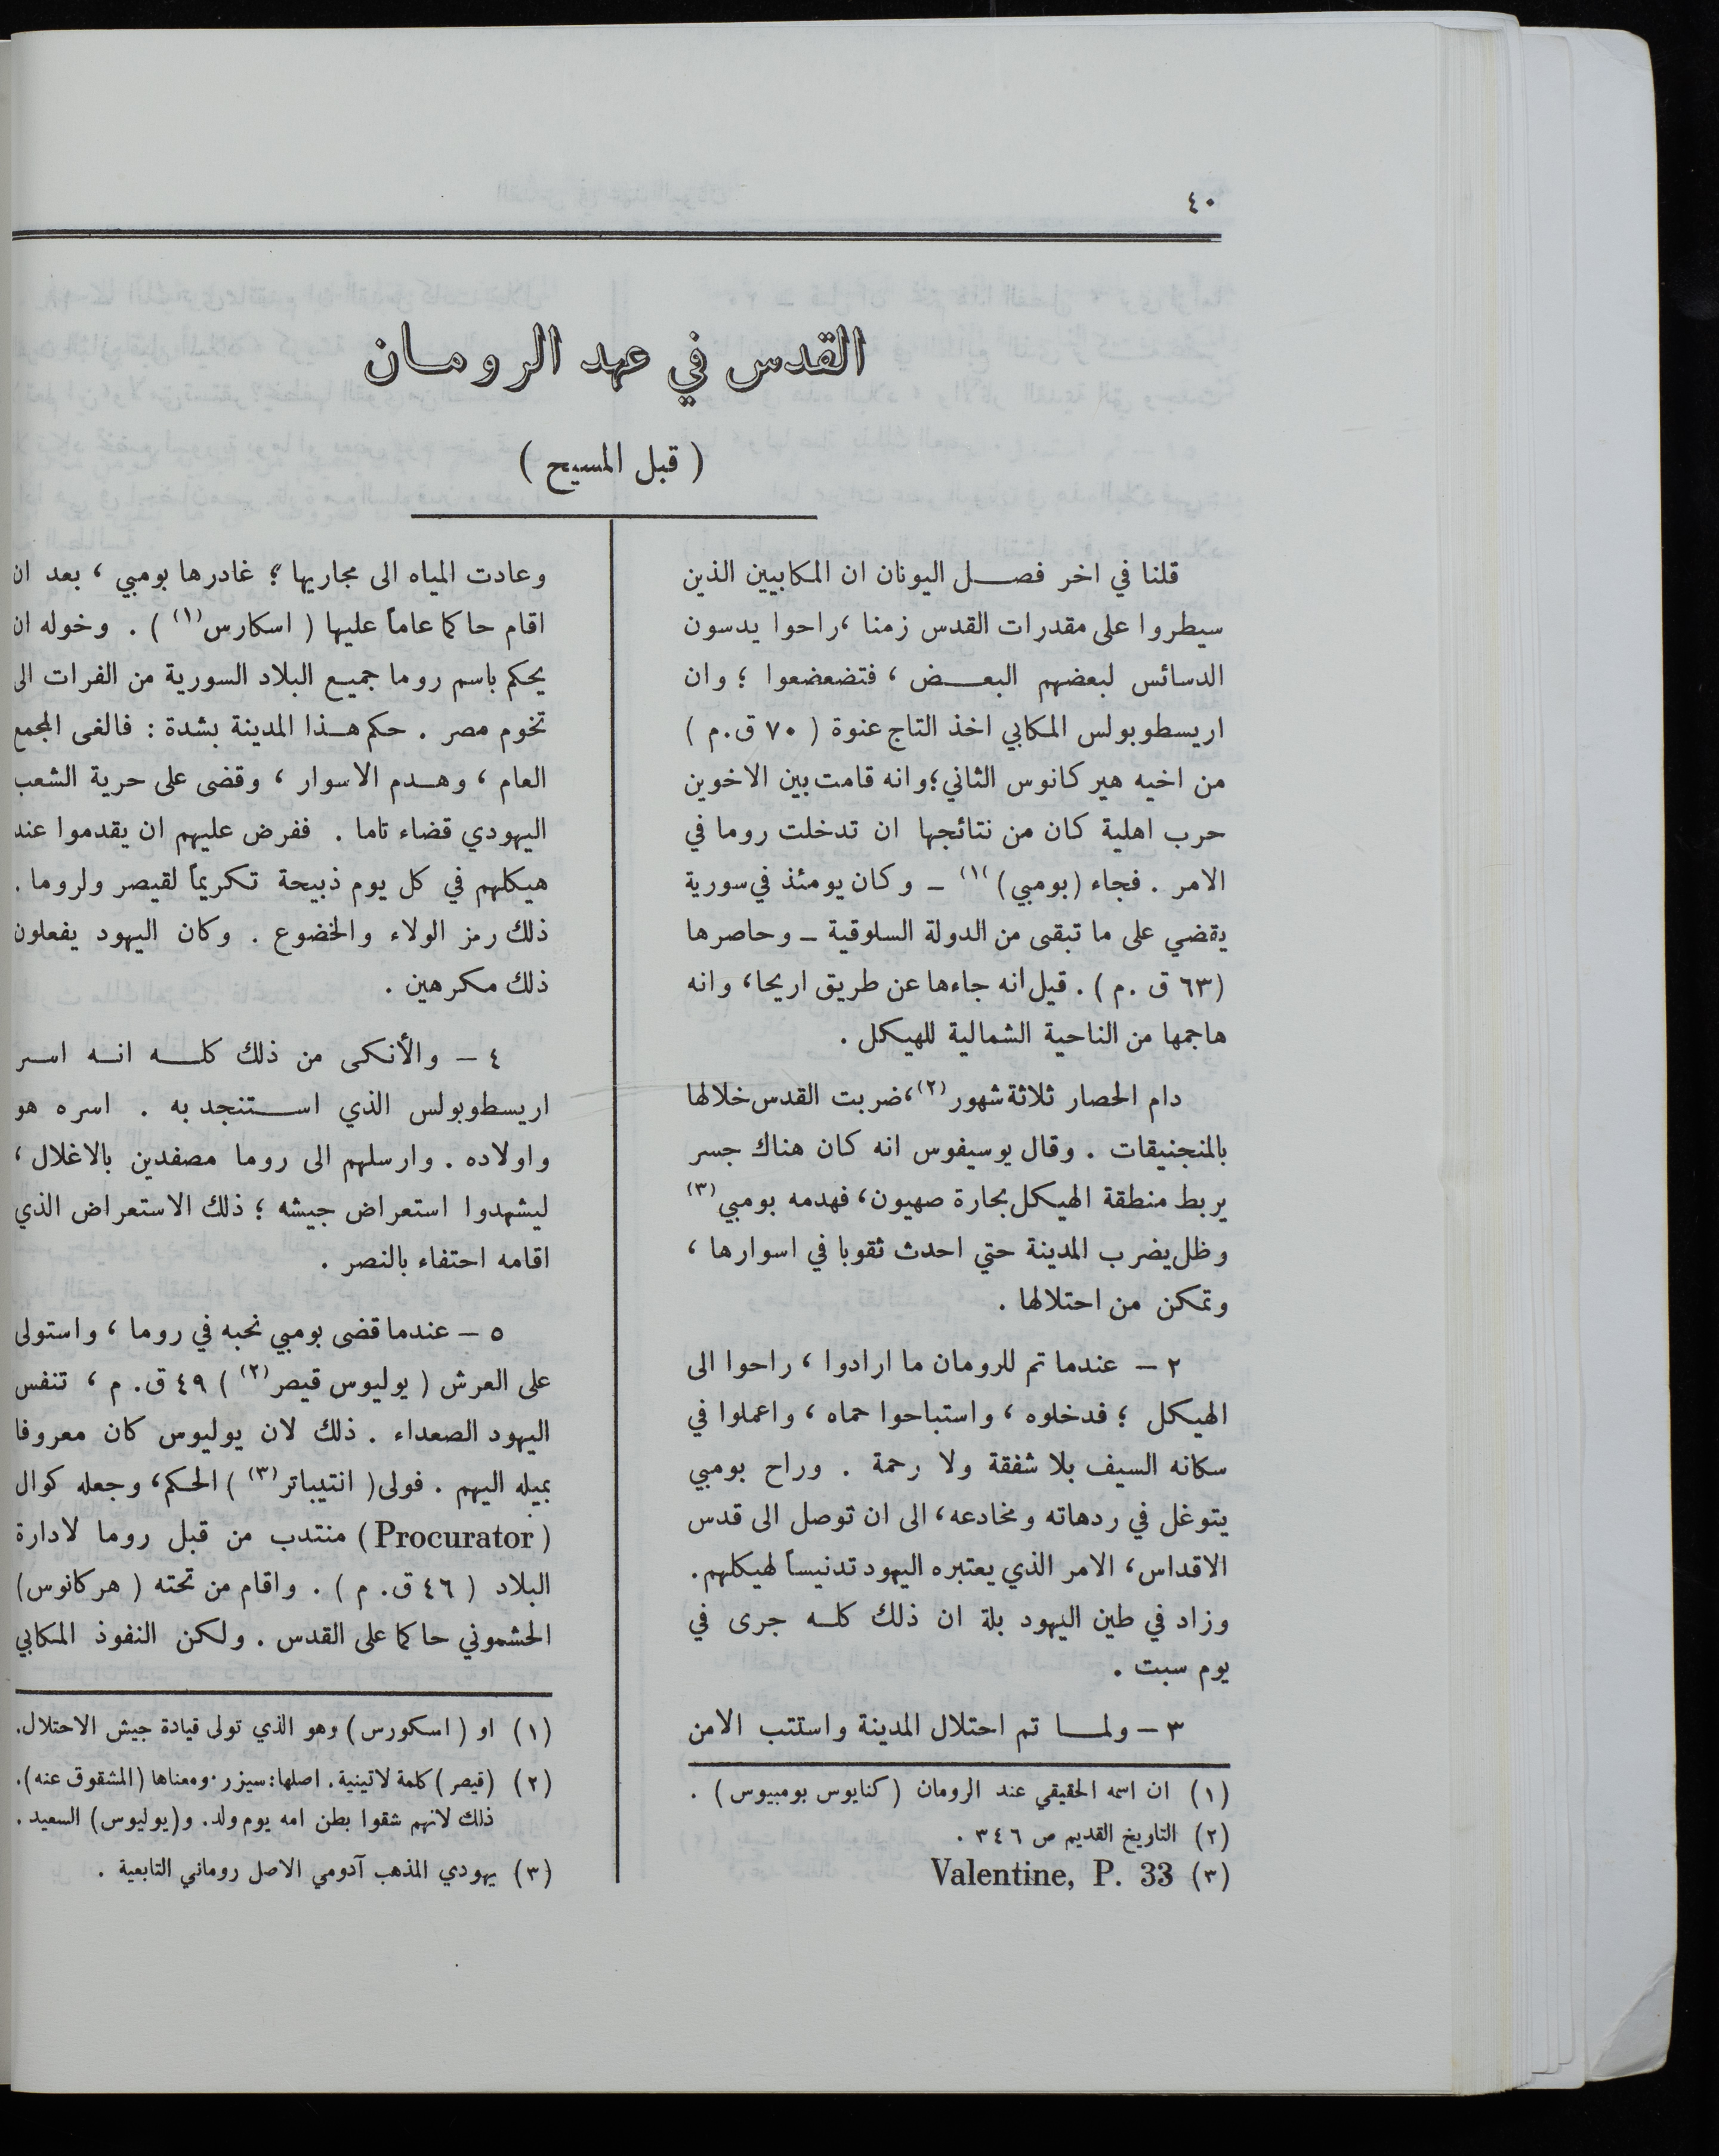 ٤٠
القدس في عهد الرومـان
( قبل المسيح )
قلنا في اخر فصـــل اليونان ان المكابيين الذين
سيطروا على مقدرات القدس زمنا ، راحوا يدسون
الدسائس لبعضهم البعـــض ، فتضعضعوا ؛ وان
اريسطوبولس المكابي اخذ التاج عنوة ( ٧٠ ق.م )
من اخيه هيركانوس الثاني ؛ وانه قامت بين الاخوين
حرب اهلية كان من نتائجها ان تدخلت روما في
الامر . فجاء (بومبي) (١) ـ وكان يومئذ في سورية
يقضي على ما تبقى من الدولة السلوقية ـ وحاصرها
(٦٣ ق .م ) . قيل انه جاءها عن طريق اريحا ، وانه
هاجمها من الناحية الشمالية للهيكل .
دام الحصار ثلاثة شهور (٢) ، ضربت القدس خلالها
بالمنجنيقات . وقال يوسيفوس انه كان هناك جسر
يربط منطقة الهيكل بحارة صهيون ، فهدمه بومبي (٣)
وظل يضرب المدينة حتي احدث ثقوبا في اسوارها ،
وتمكن من احتلالها .
٢ ـ عندما تم للرومان ما ارادوا ، راحوا الى
الهيكل ؛ فدخلوه ، واستباحوا حماه ، واعملوا في
سكانه السيف بلا شفقة ولا رحمة . وراح بومبي
يتوغل في ردهاته ومخادعه ، الى ان توصل الى قدس
الاقداس ، الامر الذي يعتبره اليهود تدنيساً لهيكلهم .
وزاد في طين اليهود بلة ان ذلك كلـه جرى في
يوم سبت .
٣ ـ ولمـــا تم احتلال المدينة واستتب الامن
(١) ان اسمه الحقيقي عند الرومان (كنايوس بومبيوس) .
(٢) التاريخ القديم ص ٣٤٦ .
(٣) Valentine, P. 33
وعادت المياه الى مجاريها ؛ غادرها بومبي ، بعد ان
اقام حاكما عاماً عليها ( اسكارس (١) ) . وخوله ان
يحكم باسم روما جميـع البلاد السورية من الفرات الى
تخوم مصر . حكم هـذا المدينة بشدة : فالغى المجمع
العام ، وهـدم الاسوار ، وقضى على حرية الشعب
اليهودي قضاء تاما . ففرض عليهم ان يقدموا عند
هيكلهم في كل يوم ذبيحة تكريماً لقيصر ولروما .
ذلك رمز الولاء والخضوع . وكان اليهود يفعلون
ذلك مكرهين .
٤ ـ والأنكى من ذلك كلــه انـه اسـر
اريسطوبولس الذي اســتنجد به . اسره هو
واولاده . وارسلهم الى روما مصفدين بالاغلال ،
ليشهدوا استعراض جيشه ؛ ذلك الاستعراض الذي
اقامه احتفاء بالنصر .
٥ ـ عندما قضى بومبي نحبه في روما ، واستولى
على العرش ( يوليوس قيصر (٢) ) ٤٩ ق. م ، تنفس
اليهود الصعداء . ذلك لان يوليوس كان معروفا
بميله اليهم . فولى ( انتيباتر (٣) ) الحكم ، وجعله كوال
( Procurator ) منتدب من قبل روما لادارة
البلاد ( ٤٦ ق. م ) . واقام من تحته ( هركانوس )
الحشموني حاكما على القدس . ولكن النفوذ المكابي
(١) او ( اسكورس ) وهو الذي تولى قيادة جيش الاحتلال .
(٢) (قيصر) كلمة لاتينية . اصلها : سيزر . ومعناها (المشقوق عنه) .
ذلك لانهم شقوا بطن امه يوم ولد . و(يوليوس) السعيد .
(٣) يهودي المذهب آدومي الاصل روماني التابعية .